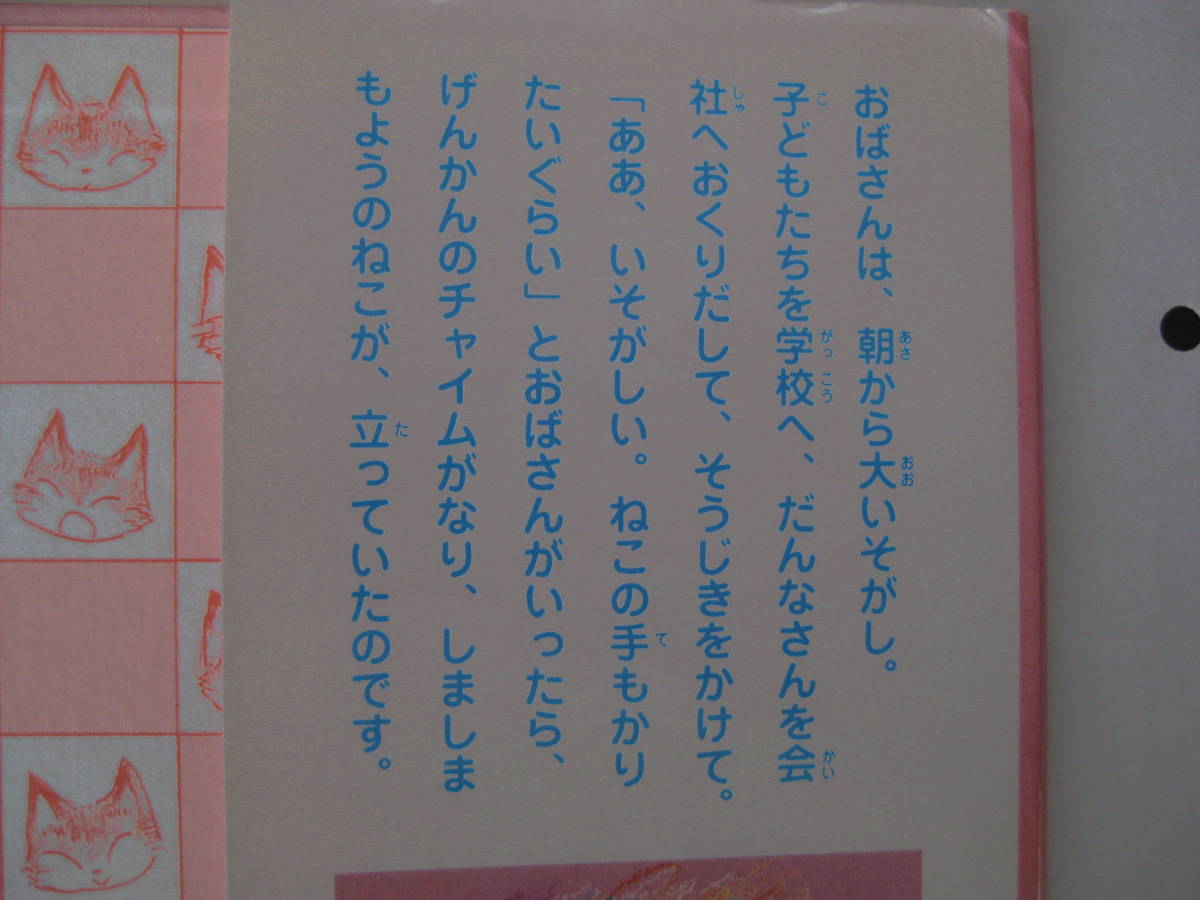 おばさんは、朝から大いそがし。
子どもたちを学校へ、だんなさんを会
社へおくりだして、そうじきをかけて。
「ああ、いそがしい。ねこの手もかり
たいぐらい」とおばさんがいったら、
げんかんのチャイムがなり、しましま
もようのねこが、立っていたのです。